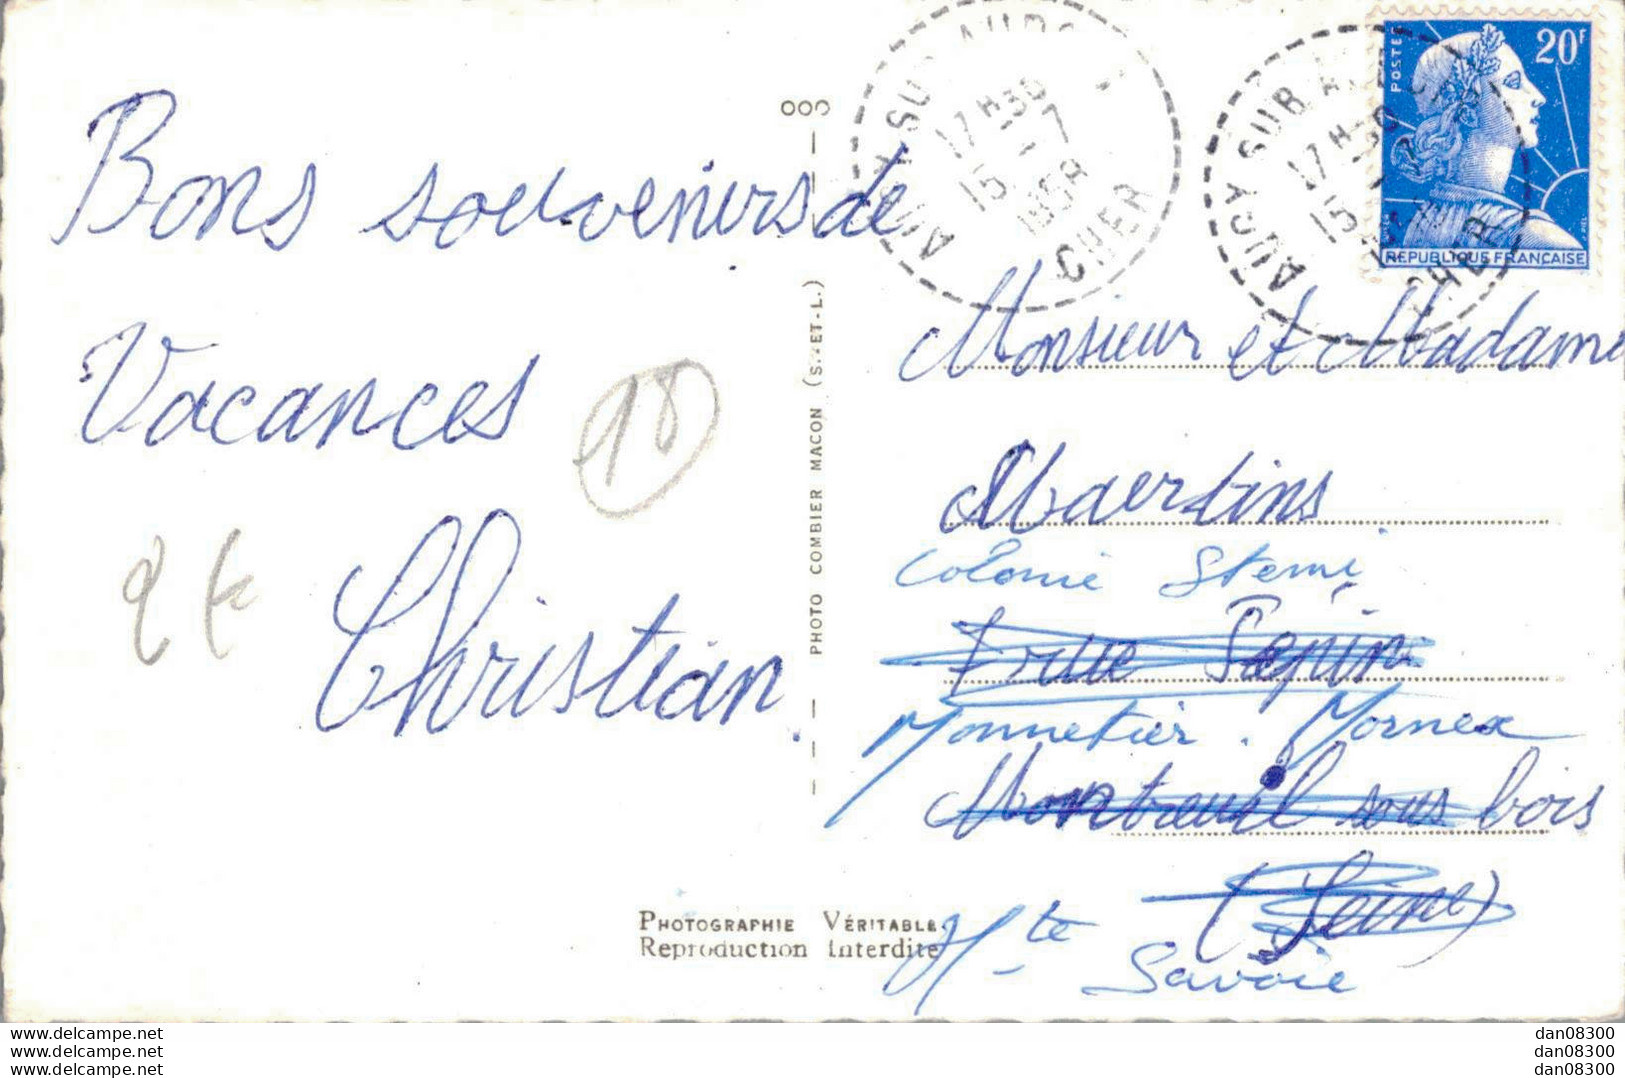 Bons souvenirs de
Vacances
Christian.
18
2 f
PHOTO COMBIER MACON (S.-ET-L.)
AUBIGNY SUR
17 H30
15 - 7
1958
CHER
17 H30
15 - 7
CHER
POSTES
20F
REPUBLIQUE FRANÇAISE
Monsieur et Madame
Maertins
Colonie
rue Pépin
Monnetier. Mornex
Montreuil sous bois
(Seine)
Hte Savoie
PHOTOGRAPHIE VÉRITABLE
Reproduction Interdite
www.delcampe.net
www.delcampe.net
www.delcampe.net
dan08300
dan08300
dan08300